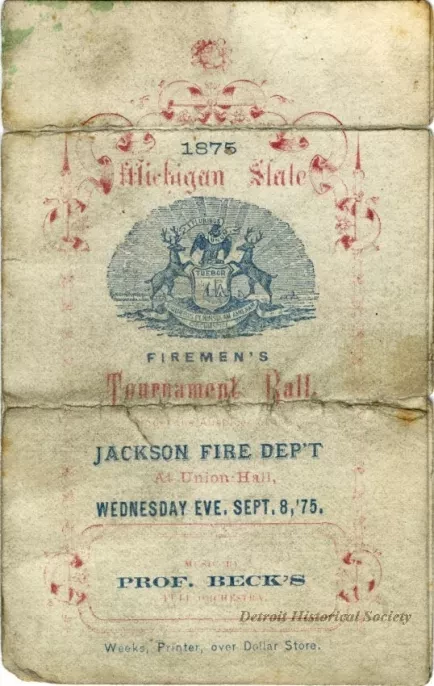 1875
Michigan State
E PLURIBUS
TUEBOR
FIREMEN'S
Tournament Ball,
JACKSON FIRE DEP'T
At Union Hall,
WEDNESDAY EVE, SEPT. 8, '75.
MUSIC BY
PROF. BECK'S
FULL ORCHESTRA.
Detroit Historical Society
Weeks, Printer, over Dollar Store.